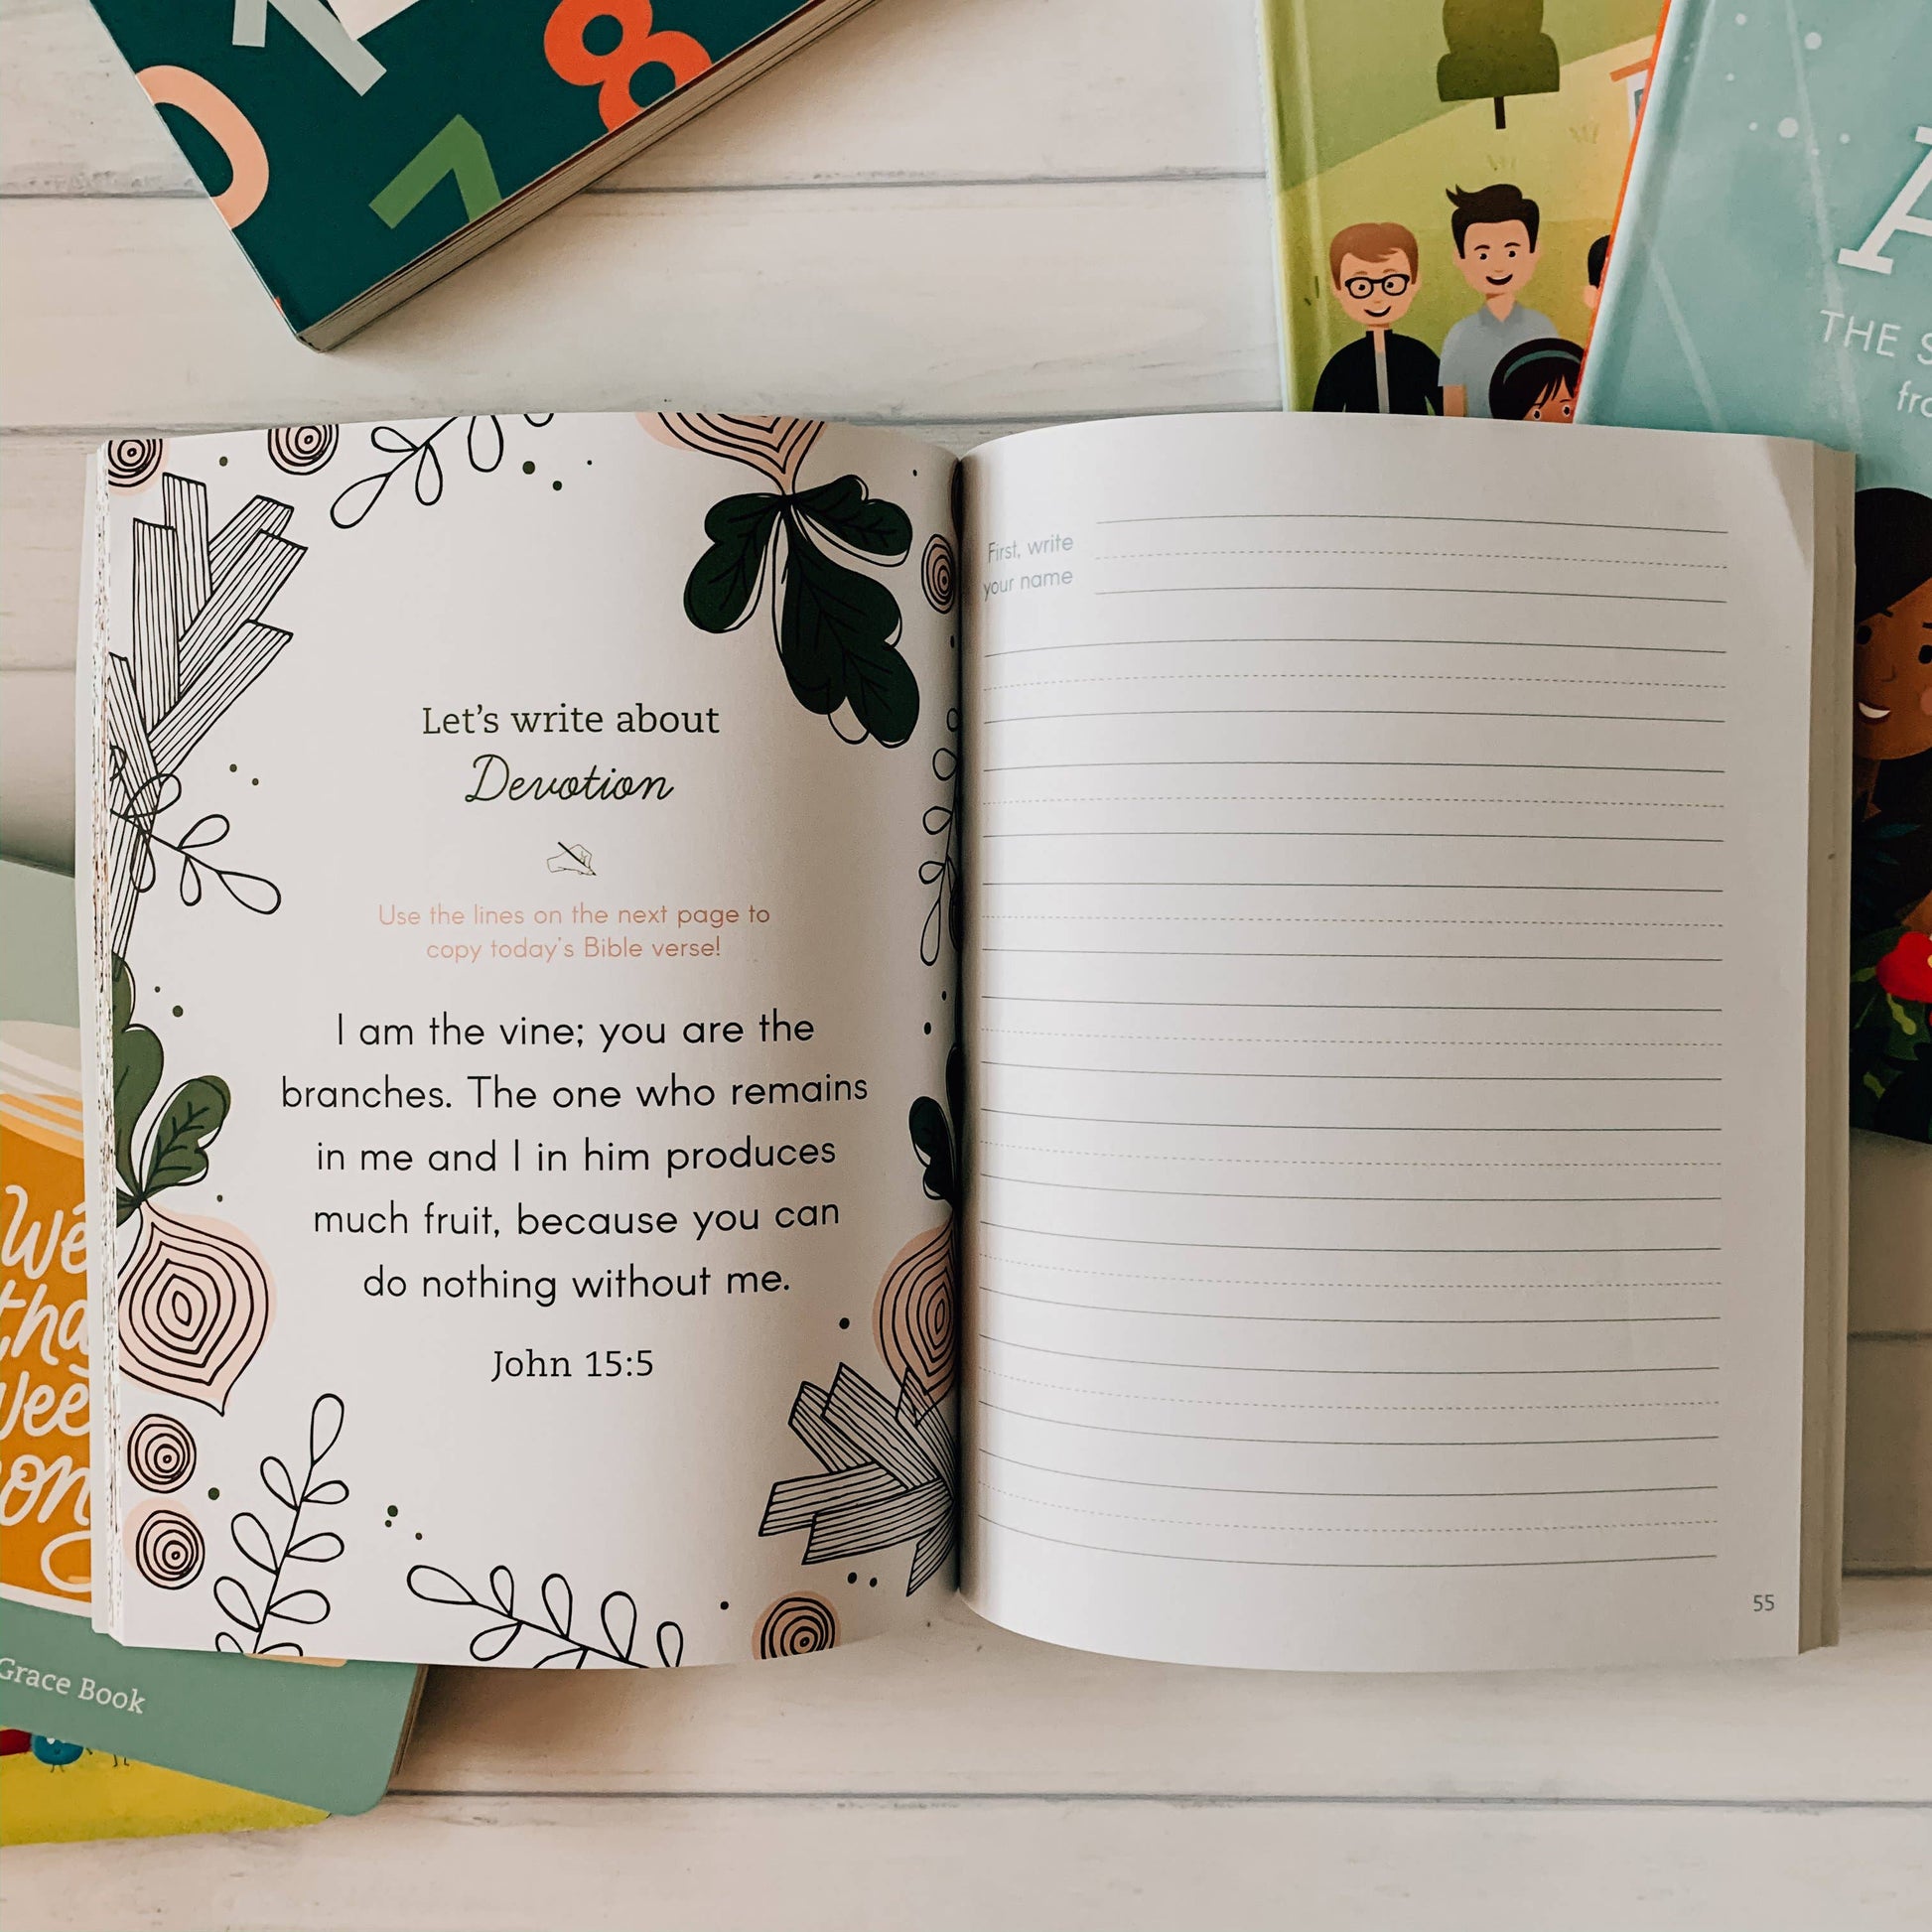 0
1
8
7
A
THE
Let's write about
Devotion
Use the lines on the next page to
copy today's Bible verse!
I am the vine; you are the
branches. The one who remains
in me and I in him produces
much fruit, because you can
do nothing without me.
John 15:5
First, write
your name
55
Grace Book